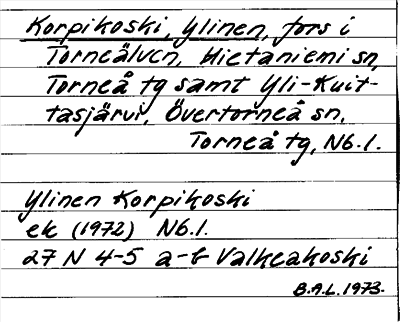 Korpikoski, Ylinen, fors i
Torneälven, Hietaniemi sn,
Torneå tg samt Yli-Kuit-
tasjärvi, Övertorneå sn,
Torneå tg, Nb.l.
Ylinen Korpikoski
ek (1972) Nb.l.
27 N 4-5 a-b Valkeakoski
B.A.L. 1973.